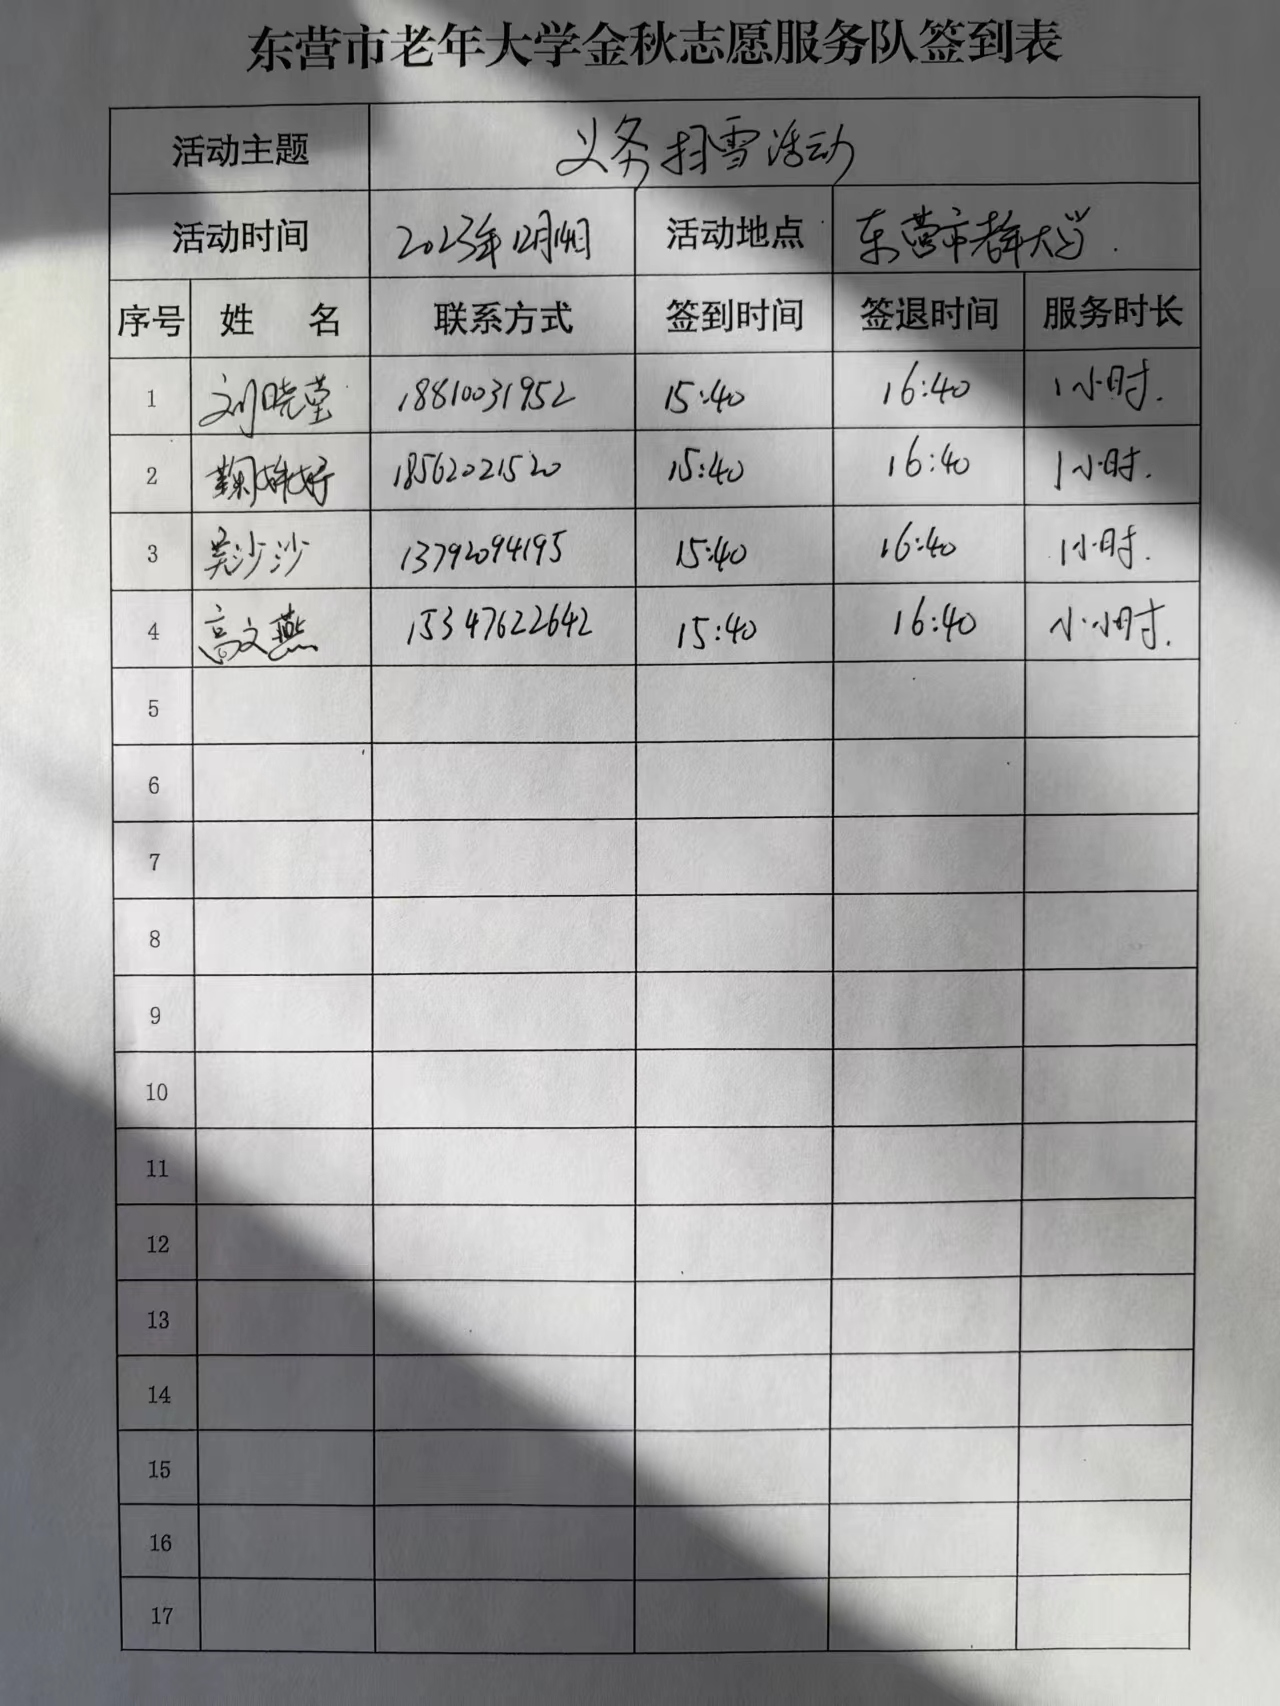 东营市老年大学金秋志愿服务队签到表
活动主题 义务扫雪活动
活动时间 2023年12月14日 活动地点 东营市老年大学.
序号 姓 名 联系方式 签到时间 签退时间 服务时长
1 刘晓莹 18810031952 15:40 16:40 1小时.
2 18562021520 15:40 16:40 1小时.
3 吴沙沙 13792094195 15:40 16:40 1小时.
4 高文燕 15347622642 15:40 16:40 小时.
5
6
7
8
9
10
11
12
13
14
15
16
17